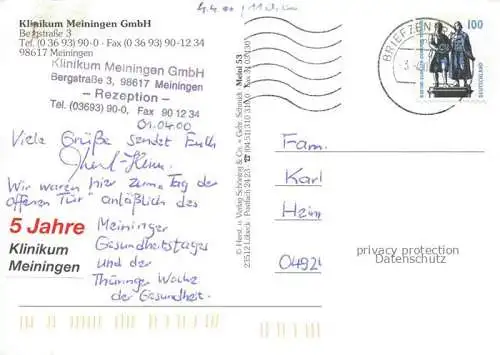 4.4.00 / 11
Klinikum Meiningen GmbH
Bergstraße 3
Tel. (0 36 93) 90-0 - Fax (0 36 93) 90-12 34
98617 Meiningen
Klinikum Meiningen GmbH
Bergstraße 3, 98617 Meiningen
- Rezeption -
Tel. (03693) 90-0, Fax 90 12 34
01.04.00
Viele Grüße sendet Euch
Wir waren hier zum „Tag der
offenen Tür" anläßlich des
5 Jahre
Klinikum
Meiningen
Meininger
Gesundheitstages
und der
Thüringer Woche
der Gesundheit.
© Herst. u. Verlag Schöning & Co. + Gebr. Schmidt · Meini 53
23512 Lübeck · Postfach 24 23
BRIEFZEN
100
DEUTSCHLAND
Fam.
Karl
Hein
0492
privacy protection
Datenschutz